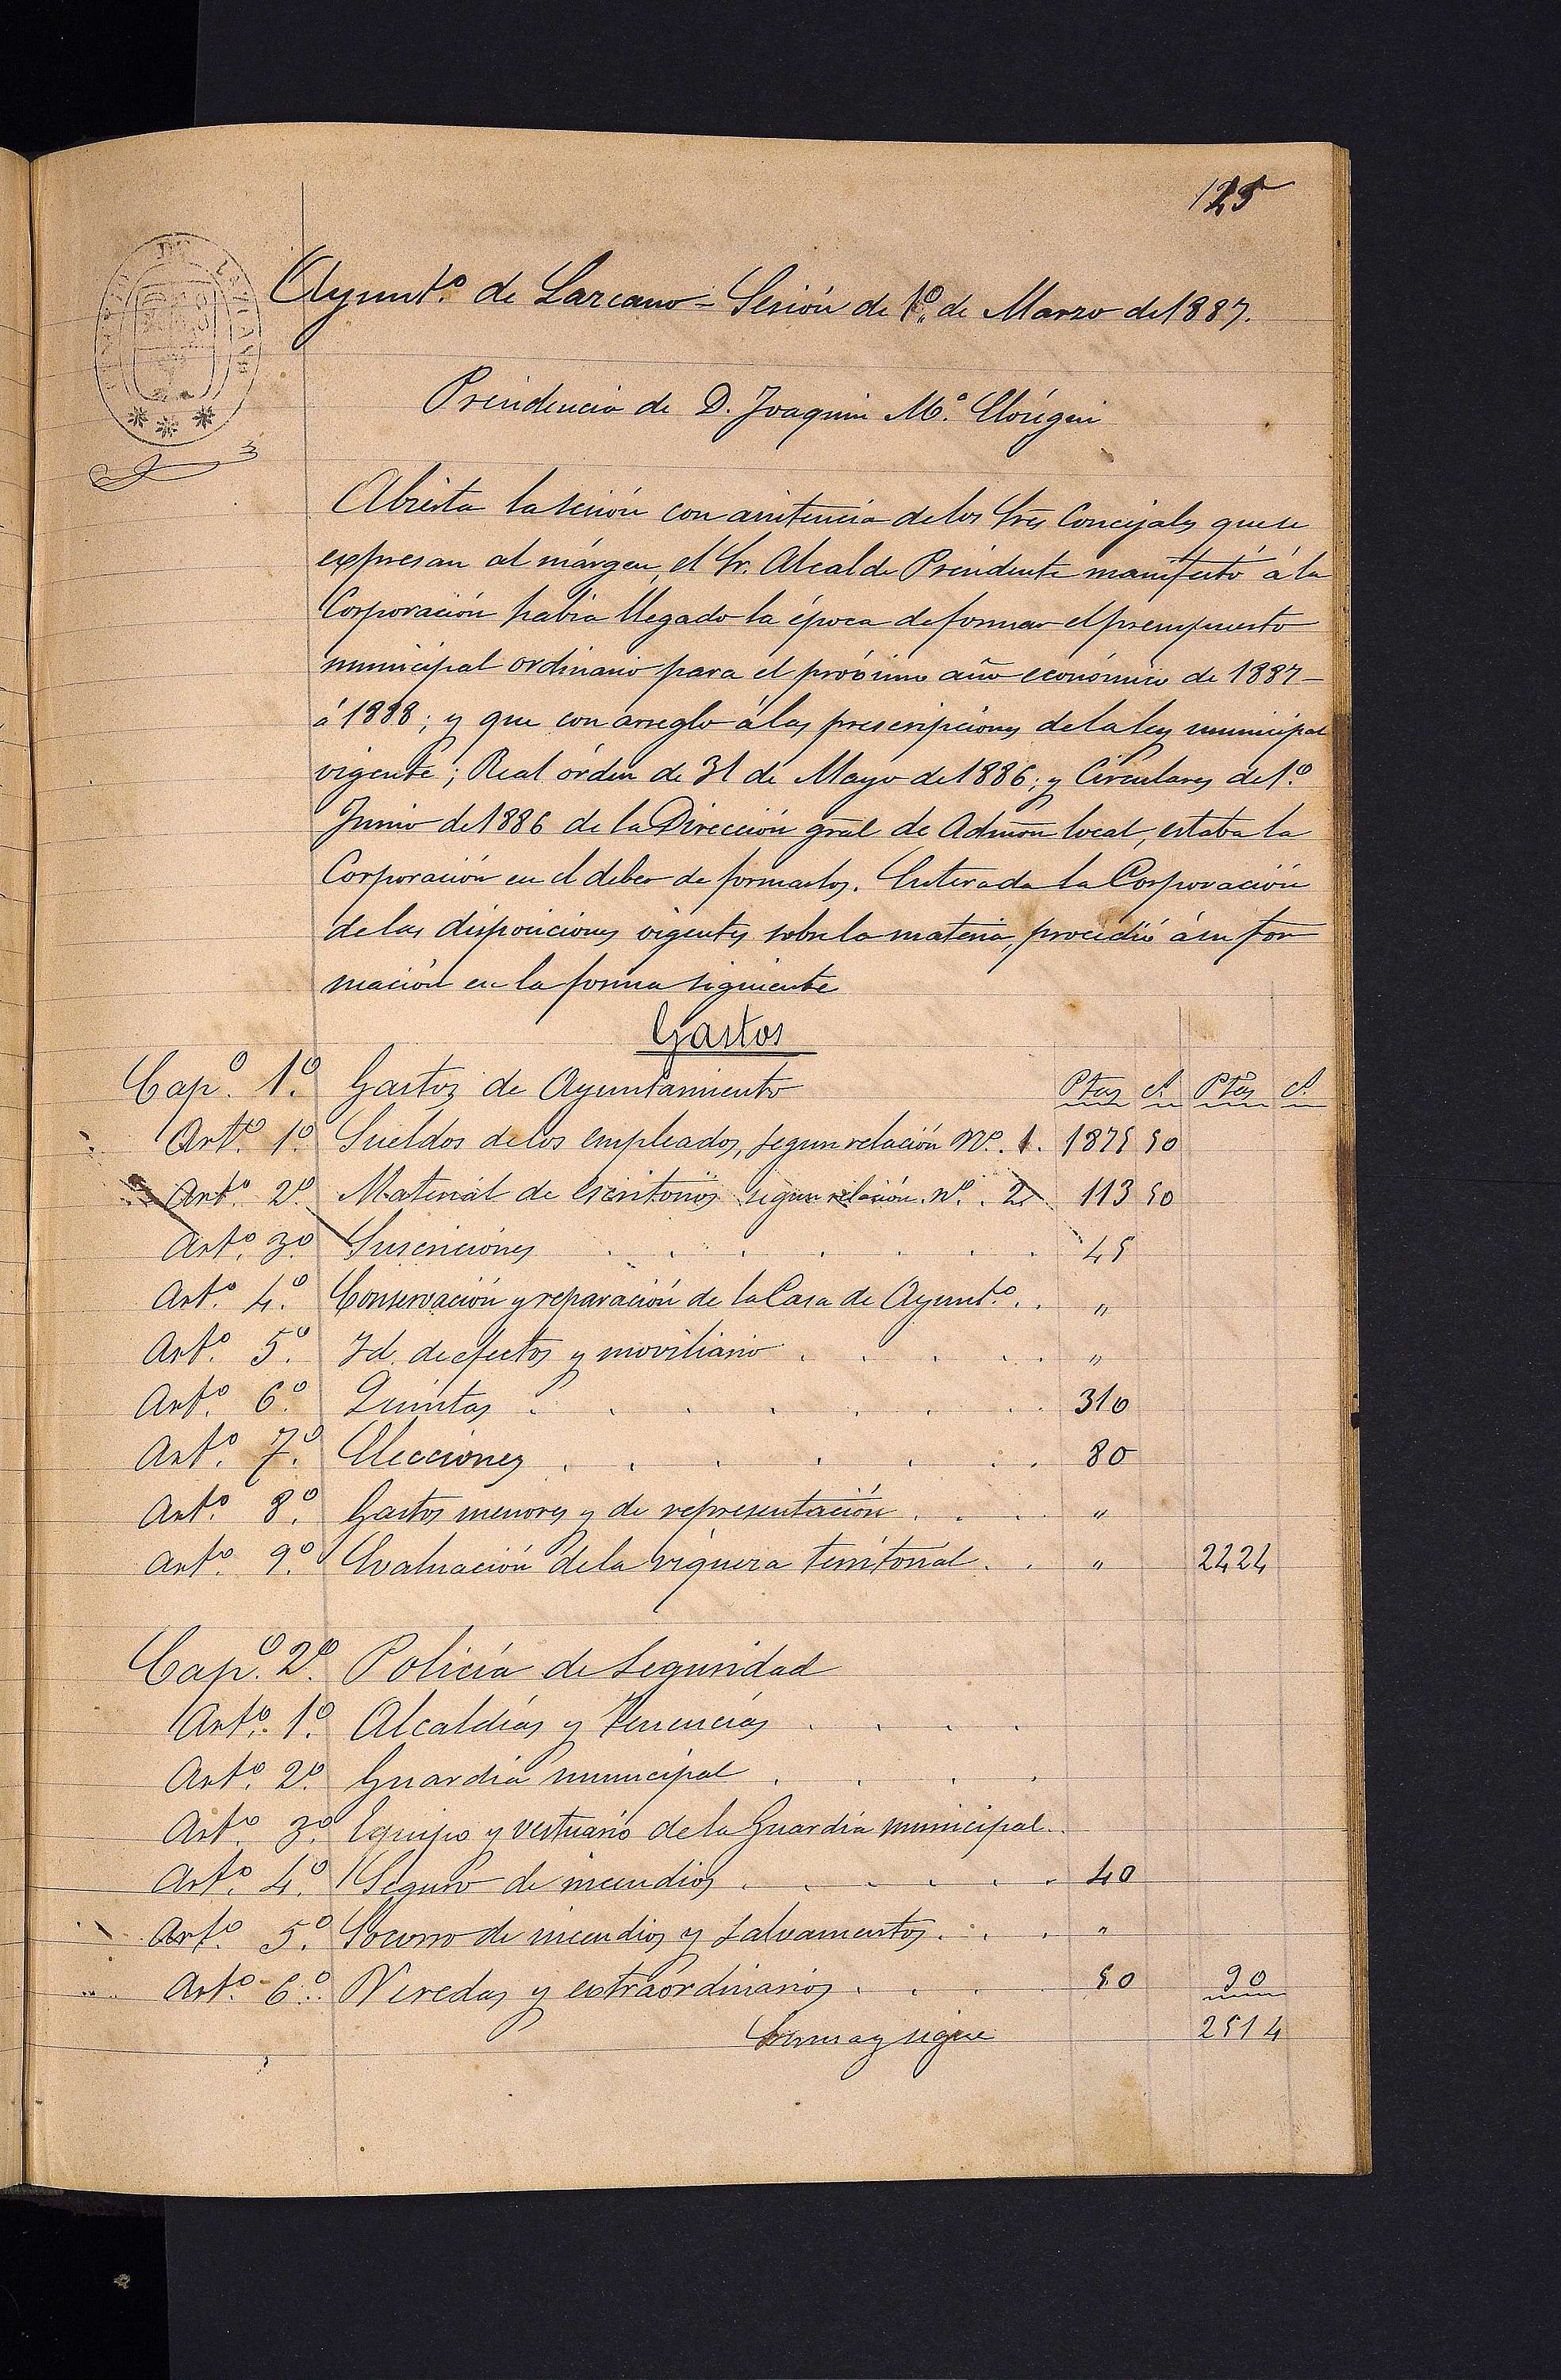 125
Ayunt.º de Lazcano - Sesión de 1º. de Marzo de 1887.
Presidencia de D. Joaquin M.ª Elósegui
Abierta la sesión con asistencia de los Sres Concejales que se
expresan al márgen, el Sr. Alcalde Presidente manifestó á la
Corporación habia llegado la época de formar el presupuesto
municipal ordinario para el próximo año económico de 1887-
á 1888; y que con arreglo á las prescripciones de la ley municipal
vigente; Real órden de 31 de Mayo de 1886; y Circulares de 1º.
Junio de 1886 de la Dirección gral de Admon local, estaba la
Corporación en el deber de formarlos. Enterada la Corporación
de las disposiciones vigentes sobre la materia, procedió á su for
mación en la forma siguiente
Gastos
Cap.º 1.º Gastos de Ayuntamiento Ptas cs Ptas cs
Art.º 1.º Sueldos de los empleados, segun relación Nº. 1. 1875 50
Art.º 2.º Material de escritorios segun relación nº. 2 113 50
Art.º 3.º Suscriciones 45
Art.º 4.º Conservación y reparación de la Casa de Ayunt.º . . "
Art.º 5.º Id. de efectos y moviliario "
Art.º 6.º Quintas 310
Art.º 7.º Elecciones 80
Art.º 8.º Gastos menores y de representación "
Art.º 9.º Evaluación de la riqueza territorial " 2424
Cap.º 2.º Policía de Seguridad
Art.º 1.º Alcaldías y Tenencias
Art.º 2.º Guardia municipal
Art.º 3.º Equipo y vestuario de la Guardia municipal
Art.º 4.º Seguro de incendios 40
Art.º 5.º Socorro de incendios y salvamentos "
Art.º 6.º Veredas y extraordinarios 50 90
Suma y sigue 2514